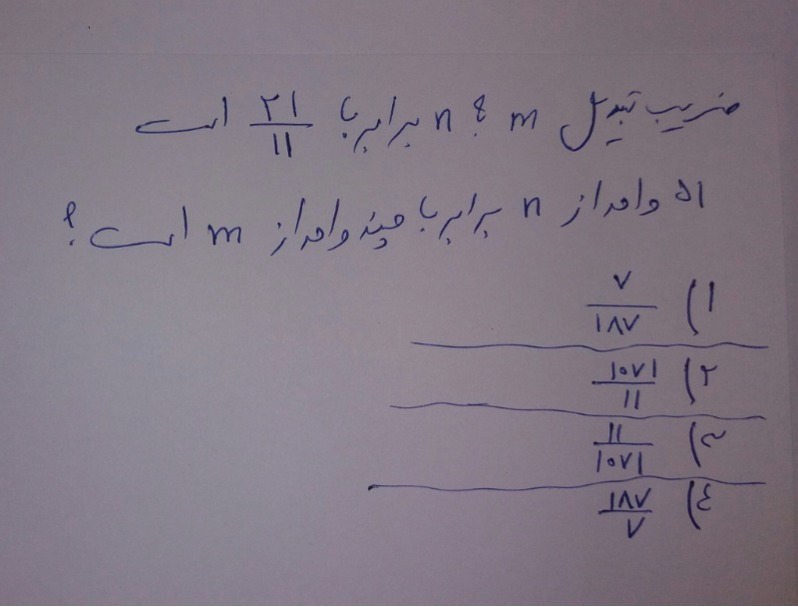 ضریب تبدیل m به n برابر با ۲۱/۱۱ است
۵۱ واحد از n برابر با چند واحد از m است؟
۱) ۷/۱۸۷
۲) ۱۰۷۱/۱۱
۳) ۱۱/۱۰۷۱
۴) ۱۸۷/۷